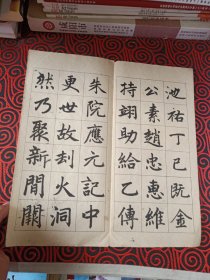 池祐丁巳既金
公素趙忠惠維
持翊助給乙傳
朱院應元記中
更世故刦火洞
然乃聚新開關